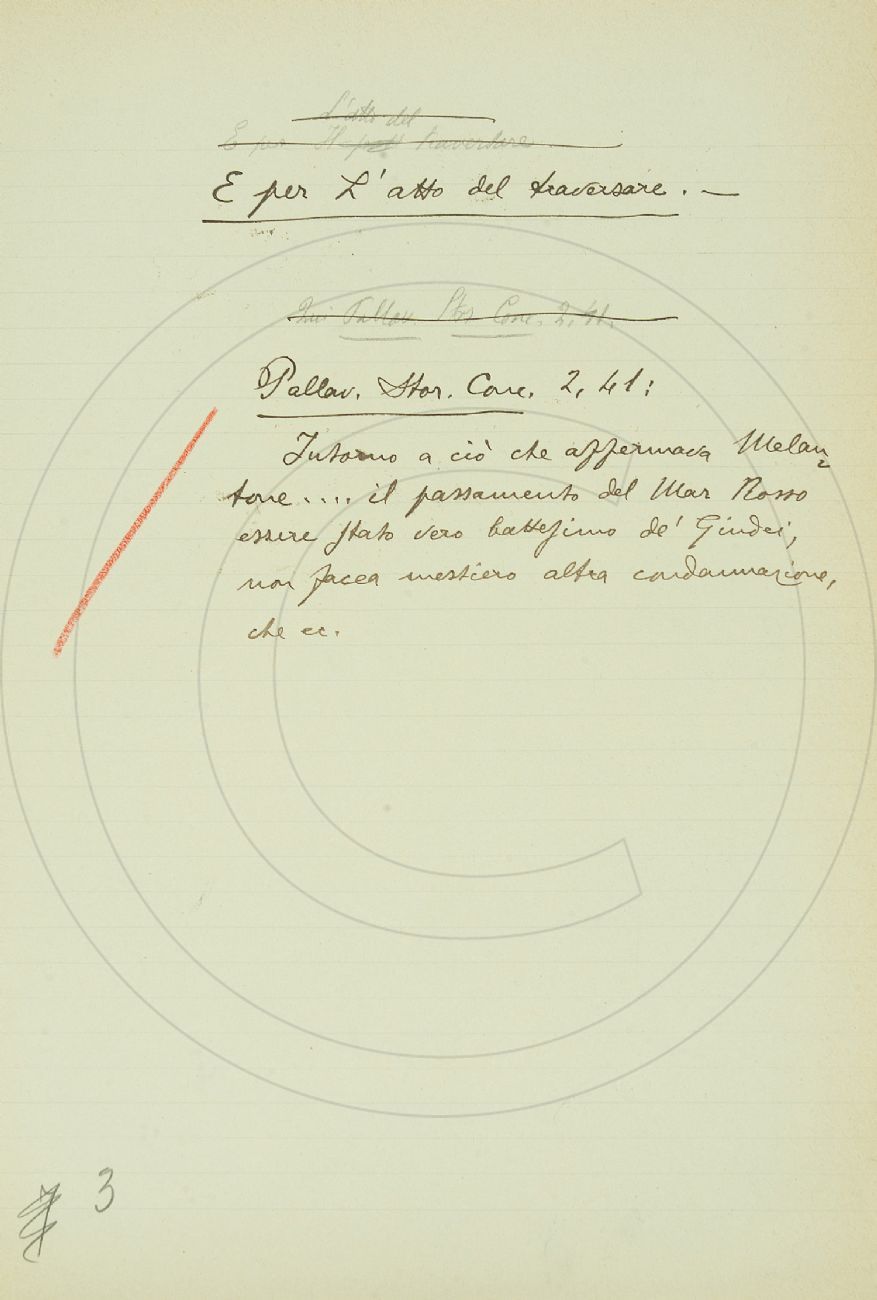 L'atto del
E per Il traversare
E per L'atto del traversare. —
Qui Pallav. Stor. Conc. 2, 41.
Pallav. Stor. Conc. 2, 41:
Intorno a ciò che affermava Melan-
tone.... il passamento del Mar Rosso
essere stato vero battesimo de' Giudei,
non facea mestiero altra condannazione,
che ec.
3